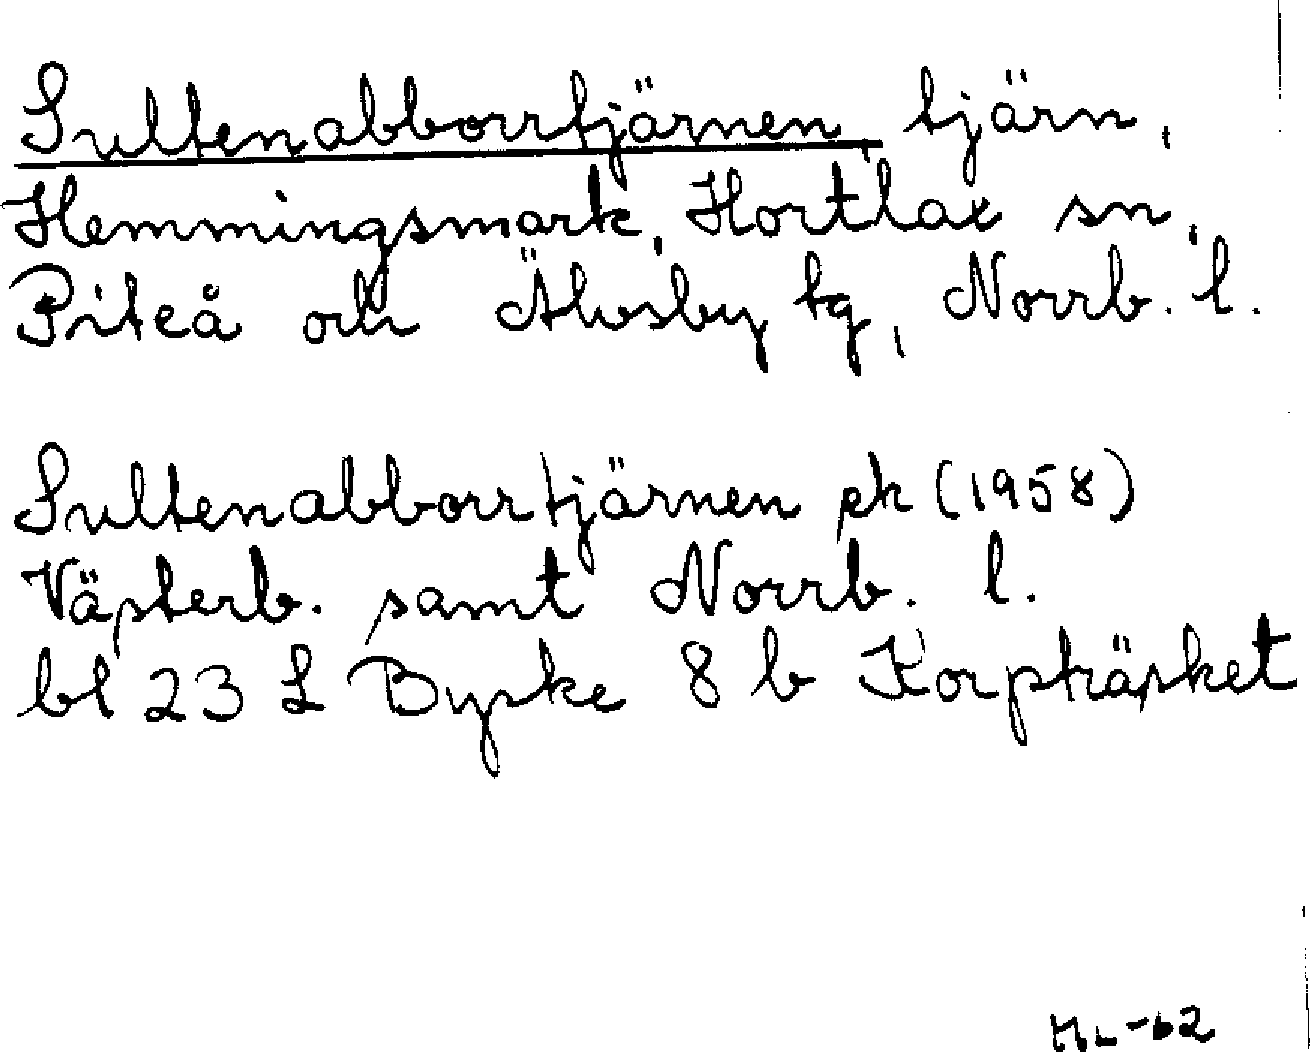 Sultenabborrtjärnen, tjärn,
Hemmingsmark, Hortlax sn,
Piteå och Älvsby tg, Norrb. l.
Sultenabborrtjärnen ek (1958)
Västerb. samt Norrb. l.
bl 23 L Byske 8 b Korpträsket
ML-62